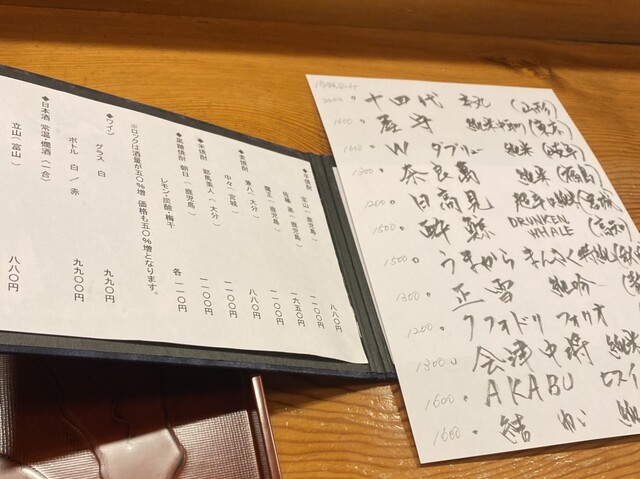 ◆芋焼酎
宝山（鹿児島） 八八〇円
佐藤 黒（鹿児島） 一一〇〇円
魔王（鹿児島） 一九五〇円
◆麦焼酎
兼八（大分） 一一〇〇円
中々（宮城） 八八〇円
◆米焼酎
耶馬美人（大分） 一一〇〇円
◆黒糖焼酎 朝日（鹿児島） 一一〇〇円
レモン・炭酸・梅干 各 一一〇円
※ロックは酒量が五〇％増 価格も五〇％増となります。
◆ワイン
グラス 白 九九〇円
ボトル 白／赤 九九〇〇円
◆日本酒 常温・燗酒（一合）
立山（富山） 八八〇円
十四代
1600 屋守 純米中取り（東京）
W ダブリュー 純米（岐阜）
1300 奈良萬 純米（福島）
1200 日高見
1500 酔鯨 DRUNKEN WHALE
1500 うまから まんさく 特純
1300 正雪 純吟
1200 フォリオ
1300 会津中将 純米
1600 AKABU
1600 結ゆい